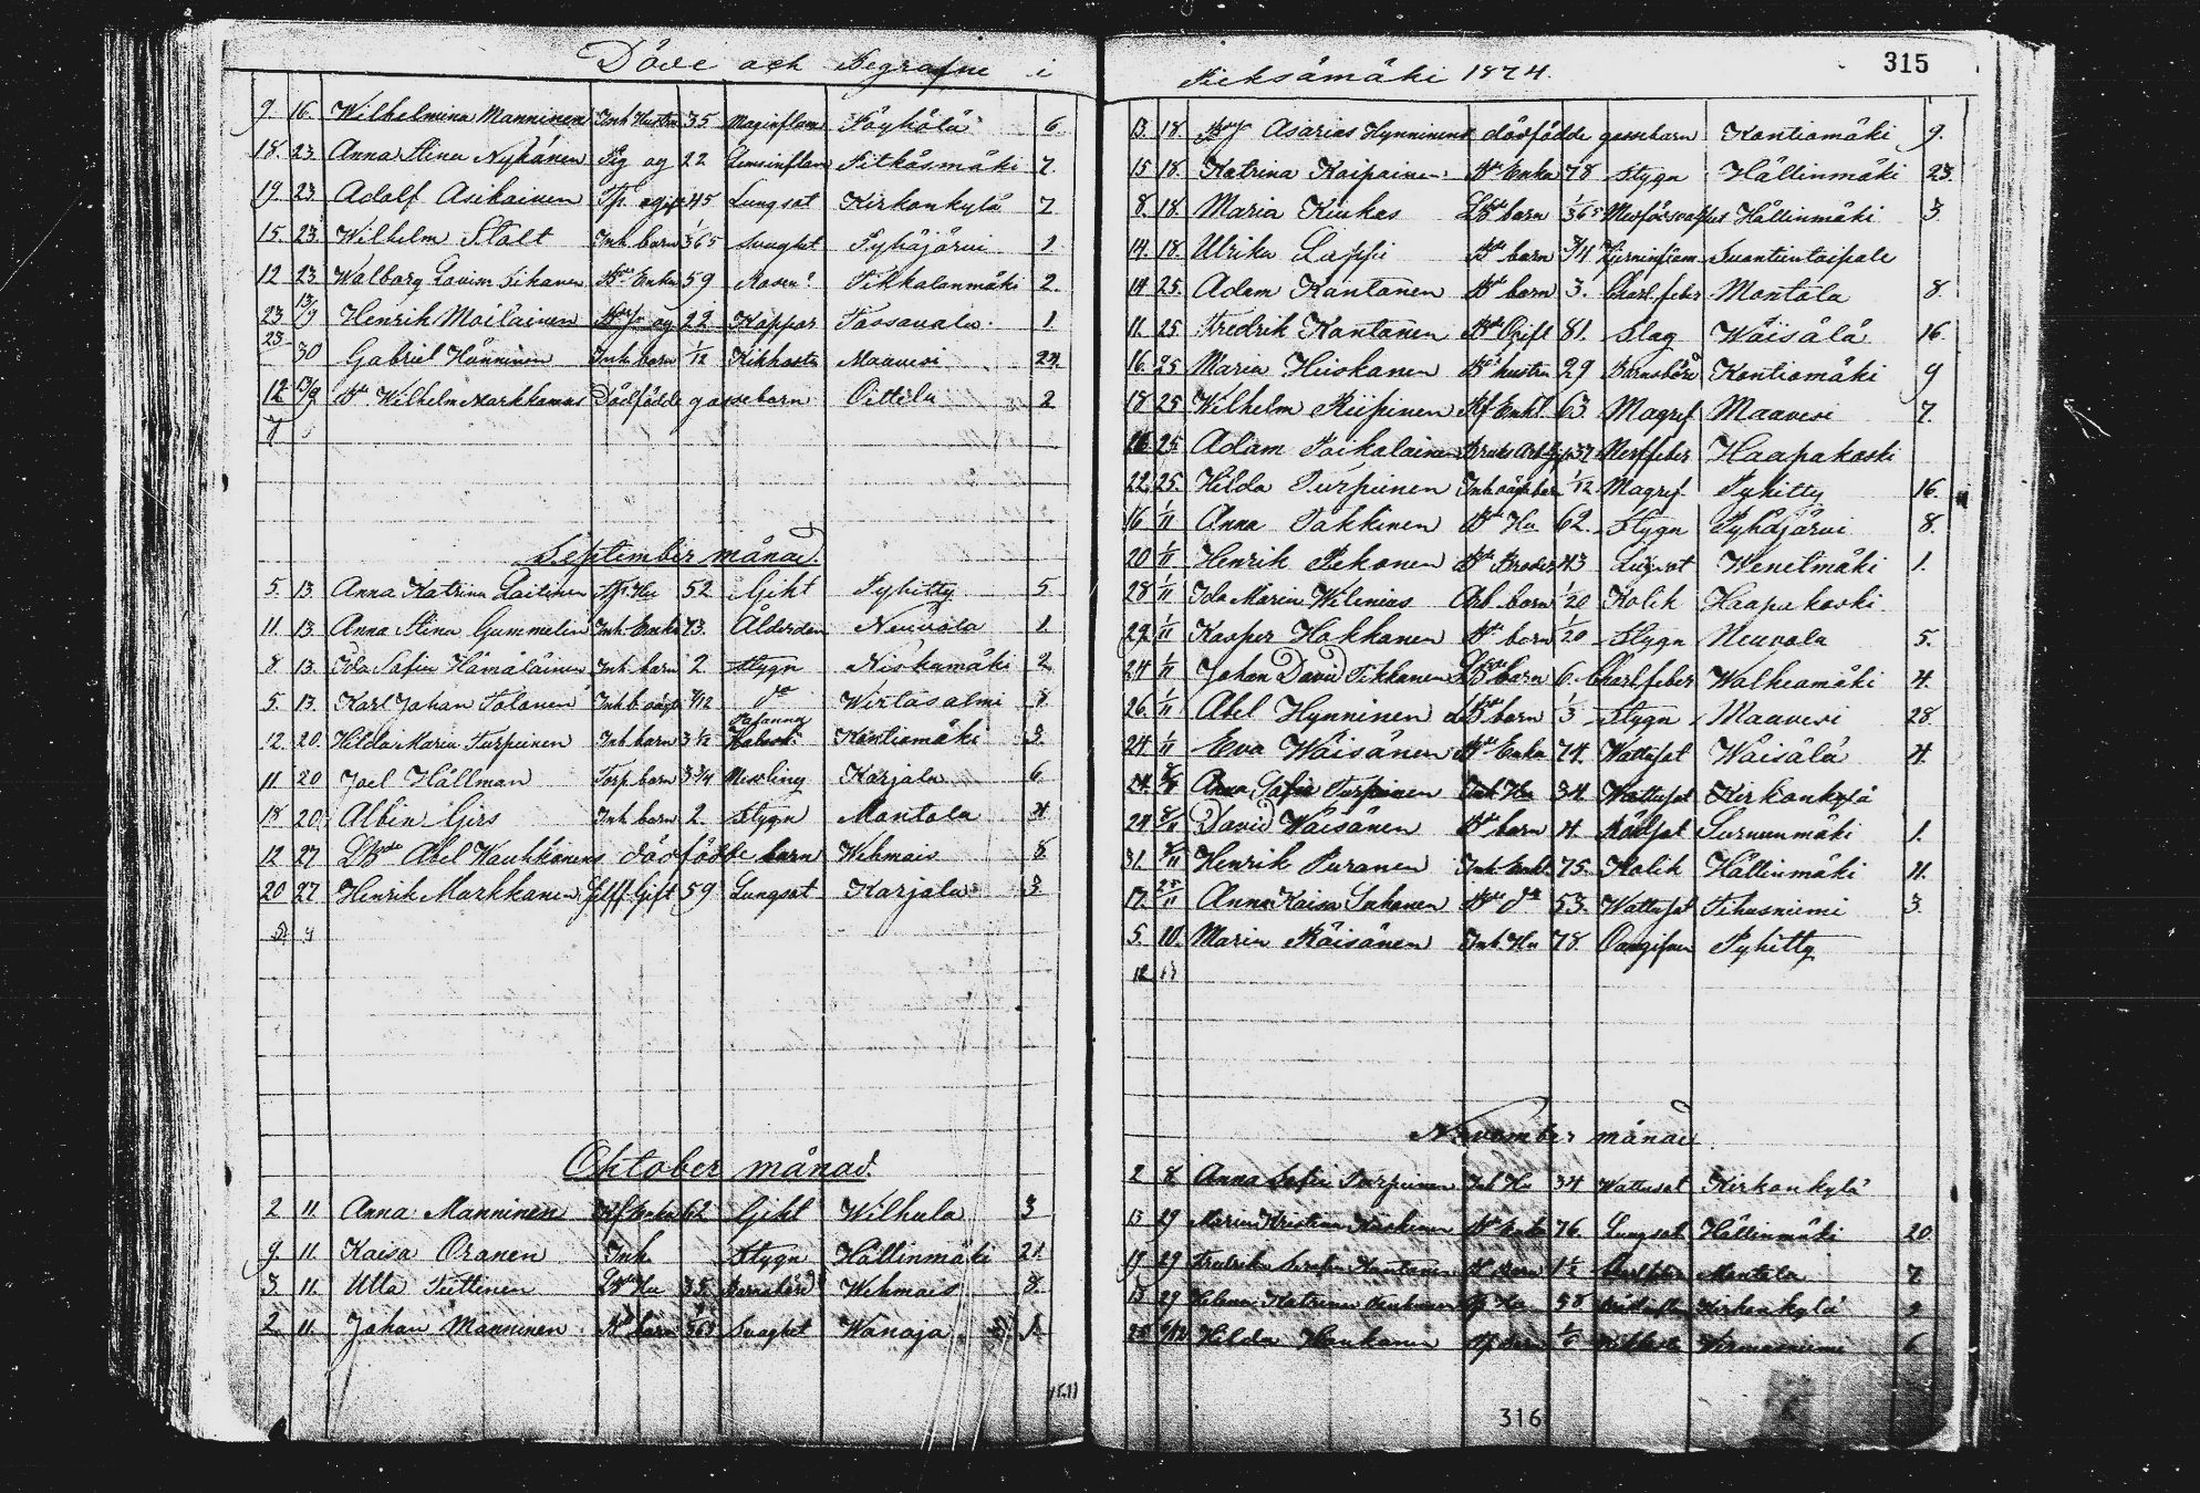 Döde och Begrafne i
9. 16. Wilhelmina Manninen Inh Hustru 35 Maginflam Pöyhölä 6.
18. 23. Anna Stina Nykänen Pig og 22 Pitkäsmäki 7.
19. 23 Adolf Asikainen Tp. 45 Lungsot Kirkonkylä 7
15. 23. Wilhelm Stolt Inh barn 1/365 Svaghet Pyhäjärvi 1.
12 23 Walborg Lovisa Bde Enka 59 Rosen Pikkalanmäki 2.
23 13/9 Henrik Moilainen og 22 Koppor Tossavala 1
23 30 Gabriel Hänninen Inh barn 1/12 Kikhosta Maavesi 24.
12 13/9 Bde Wilhelm Markkanens Dödfödde gossebarn Oittila 2
September månad.
5. 13. Anna Katrina Laitinen Hu 52 Gikt Pyhitty 5.
11. 13 Anna Stina Gummelin Inh Enka 73. Ålderdom Neuvola 1.
8 13. Ida Sofia Hämäläinen Inh barn 2 Stygn Niskamäki 2
5. 13. Karl Johan Tolonen Inh b 7/12 do Wirtasalmi 8
12. 20. Hilda Maria Turpeinen Inh barn 3 1/2 Kontiomäki 3.
11. 20 Joel Hällman Torp. barn 3 3/4 Messling Karjala 6
18 20. Albin Girs Inh barn 2. Stygn Montola 4
12 27 Abel Wauhkonens dödfödde barn Wehmais 8
20 27 Henrik Markkanen Gift 59 Lungsot Karjala 3
Oktober månad.
2 11. Anna Manninen Enka 62 Gikt Wilhula 3
9. 11. Kaisa Oranen Inh. Stygn Hällinmäki 21.
3. 11. Ulla Tiittinen Hu 35 Barnsbörd Wehmais 8.
2. 11. Johan Manninen Bde barn Svaghet Wanaja 1.
Pieksämäki 1874.
315
13. 18. Asarias Hynninens dödfödde gossebarn Kontiomäki 9.
15 18. Katrina Kaipainen Bde Enka 78 Stygn Hällinmäki 23.
8. 18. Maria Kiukas barn 1/365 Hällinmäki 3
14. 18. Ulrika Lappi Bde barn 3/4 Suontientaipale
14 25. Adam Kantanen Bde barn 3. Charl. feber Montola 8.
11. 25 Fredrik Kantanen Bde 81. Slag Wäisälä 16.
16. 25 Maria Hiiokanen Bde hustru 29 Barnsbörd Kontiomäki 9
18 25 Wilhelm Riipinen Enkl. 63 Magref Maavesi 7.
16. 25 Adam Poikolainen Bruks Arb 37 Nerffeber Haapakoski
22. 25. Hilda Turpeinen Inh 1/12 Magref Pyhitty 16.
16 1/11 Anna Takkinen Bde Hu 62. Stygn Pyhäjärvi 8.
20 1/11 Henrik Pekonen Bde Broder 43 Lugnsot Wenetmäki 1.
28 1/11 Ida Maria Wilenius Arb barn 1/20 Kolik Haapakoski
29. 1/11 Kasper Hokkanen Bde barn 1/20 Stygn Neuvola 5.
24 1/11 Johan David Tikkanen barn 6 Charl. feber Walkeamäki 4.
26. 1/11 Abel Hynninen barn 1/3 Stygn Maavesi 28
24 1/11 Eva Wäisänen Bde Enka 74. Wattusot Wäisälä 4.
24. Anna Sofia Turpeinen Inh Hu 34 Wattusot Kirkonkylä
24 8/11 David Wäisänen Bde barn 4. Rödsot Surnunmäki 1.
31. Henrik Puranen Inh Enkl. 75. Kolik Hällinmäki 11.
17. Anna Kaisa Suhonen Bde 53. Wattusot Tihusniemi 3.
5. 10. Maria Räisänen Inh. Hu 78. Oangifven Pyhitty
November månad
2 8 Anna Sofia Turpeinen Inh Hu 34 Wattusot Kirkonkylä
13 29 Maria Kristina Bde Enka 76. Lungsot Hällinmäki 20
19 29 Fredrika Serafia Kantanen barn 1 1/2 Montola 7
13 29 Helena Katrina Hu 58 Kirkonkylä 2
6/12 Hilda Kikhosta 6
316